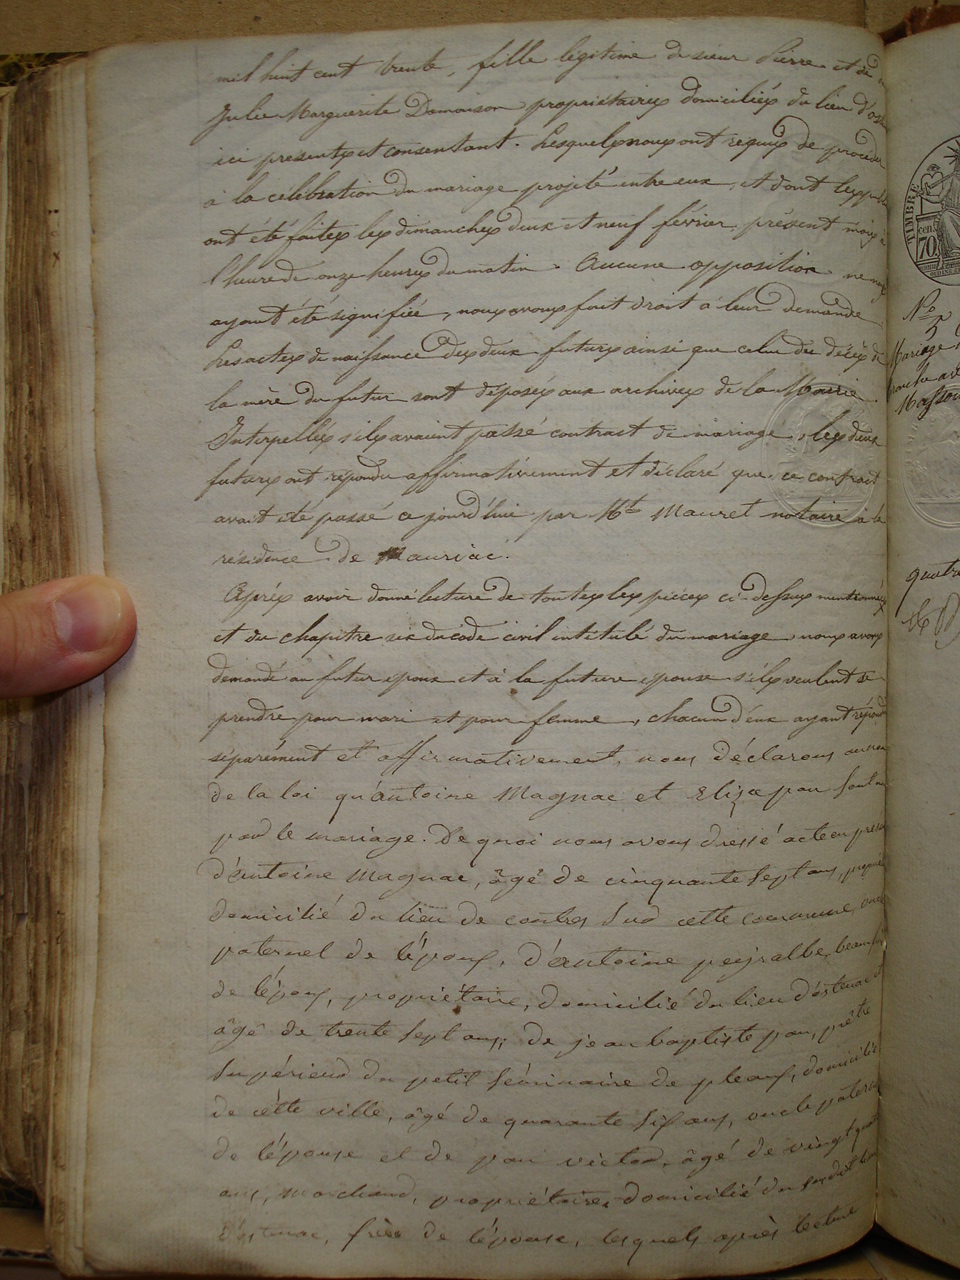 mil huit cent trente, fille légitime de sieur Pierre et de
Julie Marguerite Damaison propriétaires domiciliés du lieu d'ost
ici présents et consentant. Lesquels nous ont requis de procéder
à la célébration du mariage projeté entre eux, et dont les publ
ont été faites les dimanches deux et neuf février présent mois à
l'heure de onze heures du matin. Aucune opposition ne nous
ayant été signifiée, nous avons fait droit à leur demande
Les actes de naissance des deux futurs ainsi que celui de décès de
la mère du futur sont déposés aux archives de la Mairie.
Interpellés s'ils avaient passé contrat de mariage, les deux
futurs ont répondu affirmativement et déclaré que ce contrait
avait été passé ce jourd'hui par Mtre Mauret notaire à la
résidence de Mauriac.
Après avoir donné lecture de toutes les pièces ci dessus mentionnés
et du chapitre six du code civil intitulé du mariage, nous avons
demandé au futur époux et à la future épouse s'ils veulent se
prendre pour mari et pour femme, chacun d'eux ayant répondu
séparément et affirmativement, nous déclarons au nom
de la loi qu'antoine Magnac et Elisa pau sont
par le mariage. De quoi nous avons dressé acte en prése
d'antoine Magnac, âgé de cinquante sept ans, propri
domicilié du lieu de contres sud cette commune, oncle
paternel de l'époux, d'antoine peyralbe, beau frè
de l'époux, propriétaire, domicilié du lieu d'ostenac
âgé de trente sept ans; de jean baptiste pau, prêtre
supérieur du petit séminaire de pleaux, domicilié
de cette ville, âgé de quarante six ans, oncle paternel
de l'épouse et de pau victor, âgé de vingt quatre
ans, marchand, propriétaire, domicilié du susdit lieu
d'ostenac, frère de l'épouse, lesquels après lecture
TIMBRE
70
No 5
Mariage
quatre